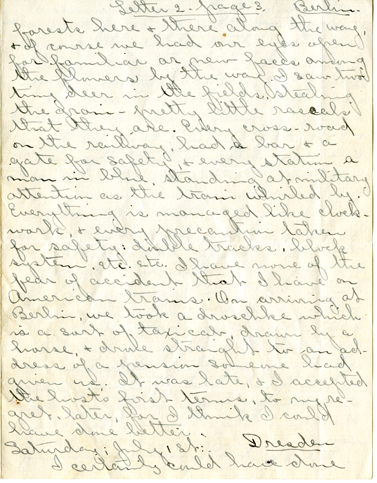 Letter 2. page 3. Berlin.
forests here & there along the way,
& of course we had our eyes open
for familiar or new faces among
the flowers by the way. I saw two
tiny deer in the fields, stealing
the grain - pretty little rascals
that they are. Every cross-road
on the railway, had a bar & a
gate for safety, & every station a
man in blue, standing at military
attention as the train whirled by.
Everything is managed like clock-
work, & every precaution taken
for safety: double tracks, block
system, etc. etc. I have none of the
fear of accident that I have on
American trains. On arriving at
Berlin, we took a droschke which
is a sort of taxicab drawn by a
horse, & drove straight to an ad-
dress of a pension someone had
given us. It was late, & I accepted
the hosts first terms, to my re-
gret, later, for I think I could
have done better.
Saturday, July 1st. Dresden
I certainly could have done